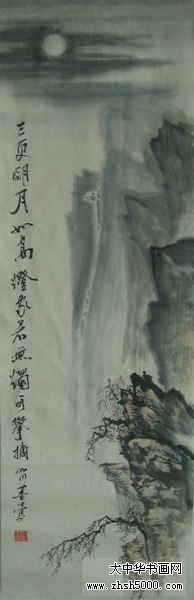 三更朙月如高燈家若無燭可攀摘
大中华书画网
www.zhsh5000.com